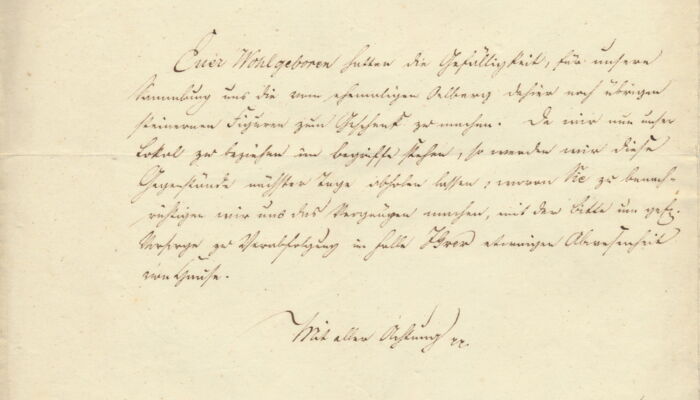 Euer Wohlgeboren hatten die Gefälligkeit, für unsere
Sammlung uns die vom ehemaligen Oelberg dahier noch übrigen
steinernen Figuren zum Geschenk zu machen. Da wir nun unser
Lokal zu beziehen im begriffe stehen, so werden wir diese
Gegenstände nächster Tage abholen lassen; wovon Sie zu benach-
richtigen wir uns das Vergnügen machen, mit der bitte um gef.
Vorsorge zu Verabfolgung in falle Ihrer etwaigen Abwesenheit
von Hause.
Mit aller Achtung